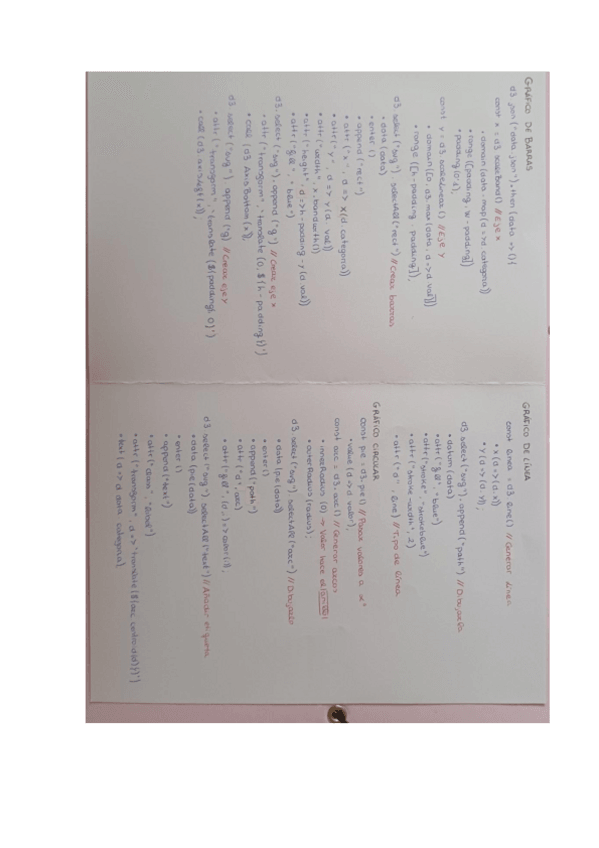 GRÁFICO DE BARRAS
d3.json("data.json").then(data => {
const x = d3.scaleBand() // Eje x
• domain(data.map(d => d.categoria))
• range([padding, w-padding])
• padding(0.2);
const y = d3.scaleLinear() // Eje y
• domain([0, d3.max(data, d => d.val)])
• range([h-padding, padding]);
d3.select("svg").selectAll("rect") // Crear barras
• data(data)
• enter()
• append("rect")
• attr("x", d => x(d.categoria))
• attr("y", d => y(d.val))
• attr("width", x.bandwidth())
• attr("height", d => h-padding-y(d.val))
• attr("fill", "blue")
d3.select("svg").append("g") // Crear eje x
• attr("transform", `translate(0,${h-padding})`)
• call(d3.AxisBottom(x));
d3.select("svg").append("g") // Crear eje y
• attr("transform", `translate(${padding},0)`)
• call(d3.axisLeft(x));
GRÁFICO DE LÍNEA
const line = d3.line() // Generar línea
• x(d => (d.x))
• y(d => (d.y));
d3.select("svg").append("path") // Dibujarla
• datum(data)
• attr("fill", "blue")
• attr("stroke", "strokeblue")
• attr("stroke-width", 2)
• attr("d", line) // Tipo de línea
GRÁFICO CIRCULAR
const pie = d3.pie() // Pasar valores a
• value(d => d.valor);
const arc = d3.arc() // Generar arcos
• innerRadius(0) → Valor hace
• outerRadius(radius);
d3.select("svg").selectAll("arc") // Dibujarlo
• data(pie(data))
• enter()
• append("path")
• attr("d", arc)
• attr("fill", (d,i) => color(i));
d3.select("svg").selectAll("text") // Añadir etiqueta
• data(pie(data))
• enter()
• append("text")
• attr("class", "label")
• attr("transform", d => `translate(${arc.centroid(d)})`)
• text(d => d.data.categoria)